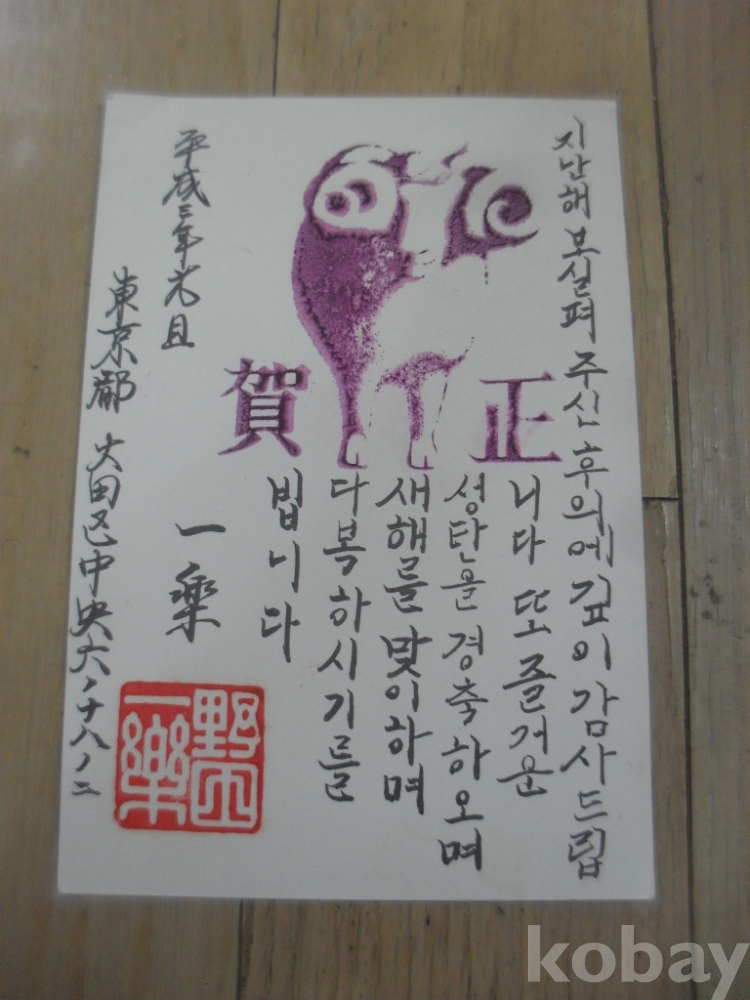 지난해 보살펴 주신 후의에 깊이 감사드립
니다 또 즐거운
성탄을 경축하오며
새해를 맞이하며
다복하시기를
빕니다
賀正
平成三年元旦
東京都 大田区中央六ノ十八ノ二
一楽
一樂
kobay